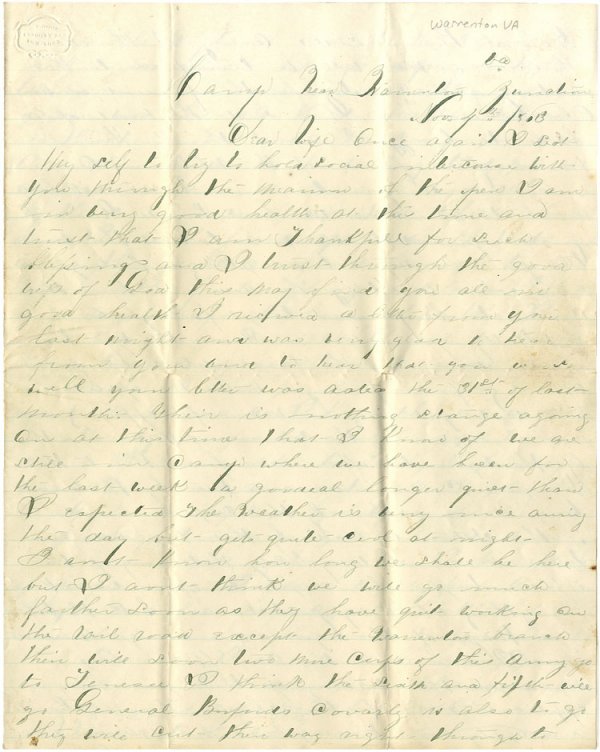 Warrenton VA
Va
Camp Near Warrenton Junction
Nov 4th 1863
Dear Wife Once again I set
My self to try to hold social intercourse with
you through the meanum of the pen I am
in very good health at the time and
trust that I am Thankfull for such
blessing and I trust through the good
of God this may find you all in
good health I received a letter from you
last night and was very glad to hear
from you and to hear that you were
well your letter was dated the 31st of last
month. Their is nothing strange agoing
on at this time that I know of we are
still in Camp where we have been for
the last week a godeal longer quiet than
I expected The weather is very nice during
the day but gets quite cool at night
I dont know how long we shall be here
but I dont think we will go much
farther soon as they have quit working on
the rail road except the Warrenton branch
their will soon two more Corps of this Army go
to Tenesee I think the sixth and fifth will
go General Bufords Covarly is also to go
they will cut their way right through to